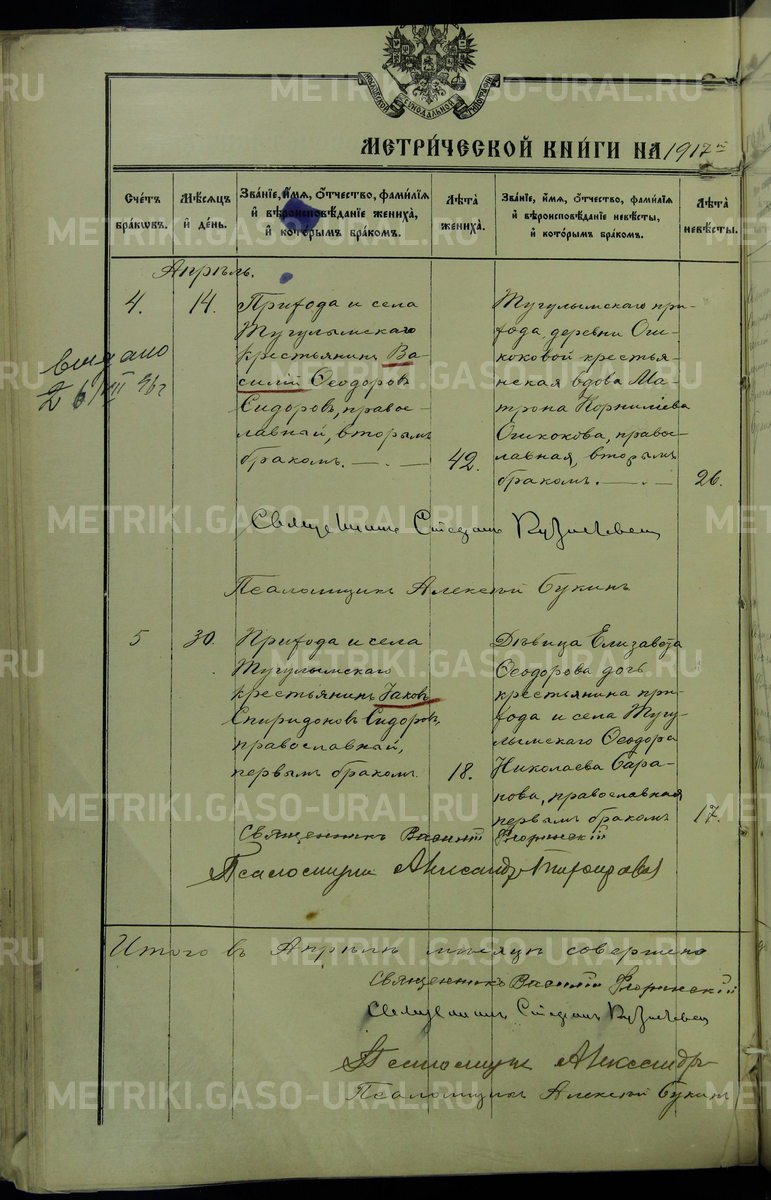 МОСКОВСКОЙ СѴНОДАЛЬНОЙ ТИПОГРАФІИ
МЕТРИ́ЧЕСКОЙ КНИ́ГИ НА 1917 г.
Сче́тъ бра́ковъ.
Мѣ́сяцъ и҆ де́нь.
Зва́нїе, и҆́мя, ѻ҆́тчество, фами́лїя и҆ вѣроисповѣ́данїе жениха̀, и҆ кото́рымъ бра́комъ.
Лѣ́та жениха̀.
Зва́нїе, и҆́мя, ѻ҆́тчество, фами́лїя и҆ вѣроисповѣ́данїе невѣ́сты, и҆ кото́рымъ бра́комъ.
Лѣ́та невѣ́сты.
Апрѣль.
4.
14.
Прихода и села
Тугулымскаго
крестьянинъ Ва-
силій Ѳеодоровъ
Сидоровъ, право-
славный, вторымъ
бракомъ.
42.
Тугулымскаго при-
хода, деревни Оши-
коковой крестья-
нская вдова Ма-
трона Корниліева
Ошкокова, право-
славная, вторымъ
бракомъ.
26.
выдано
Священникъ Стефанъ
Псаломщикъ Алексѣй Букинъ
5
30.
Прихода и села
Тугулымскаго
крестьянинъ Іаковъ
Спиридоновъ Сидоровъ,
православный,
первымъ бракомъ
18.
Дѣвица Елизавета
Ѳеодорова дочь
крестьянина при-
хода и села Тугу-
лымскаго Ѳеодора
Николаева Сара-
пова, православная
первымъ бракомъ
17.
Священникъ Василій Флоринскій
Псаломщикъ Александръ
Итого въ Апрѣлѣ мѣсяцѣ совершено
Священникъ Василій Флоринскій
Священникъ Стефанъ
Псаломщикъ Александръ
Псаломщикъ Алексѣй Букинъ
METRIKI.GASO-URAL.RU